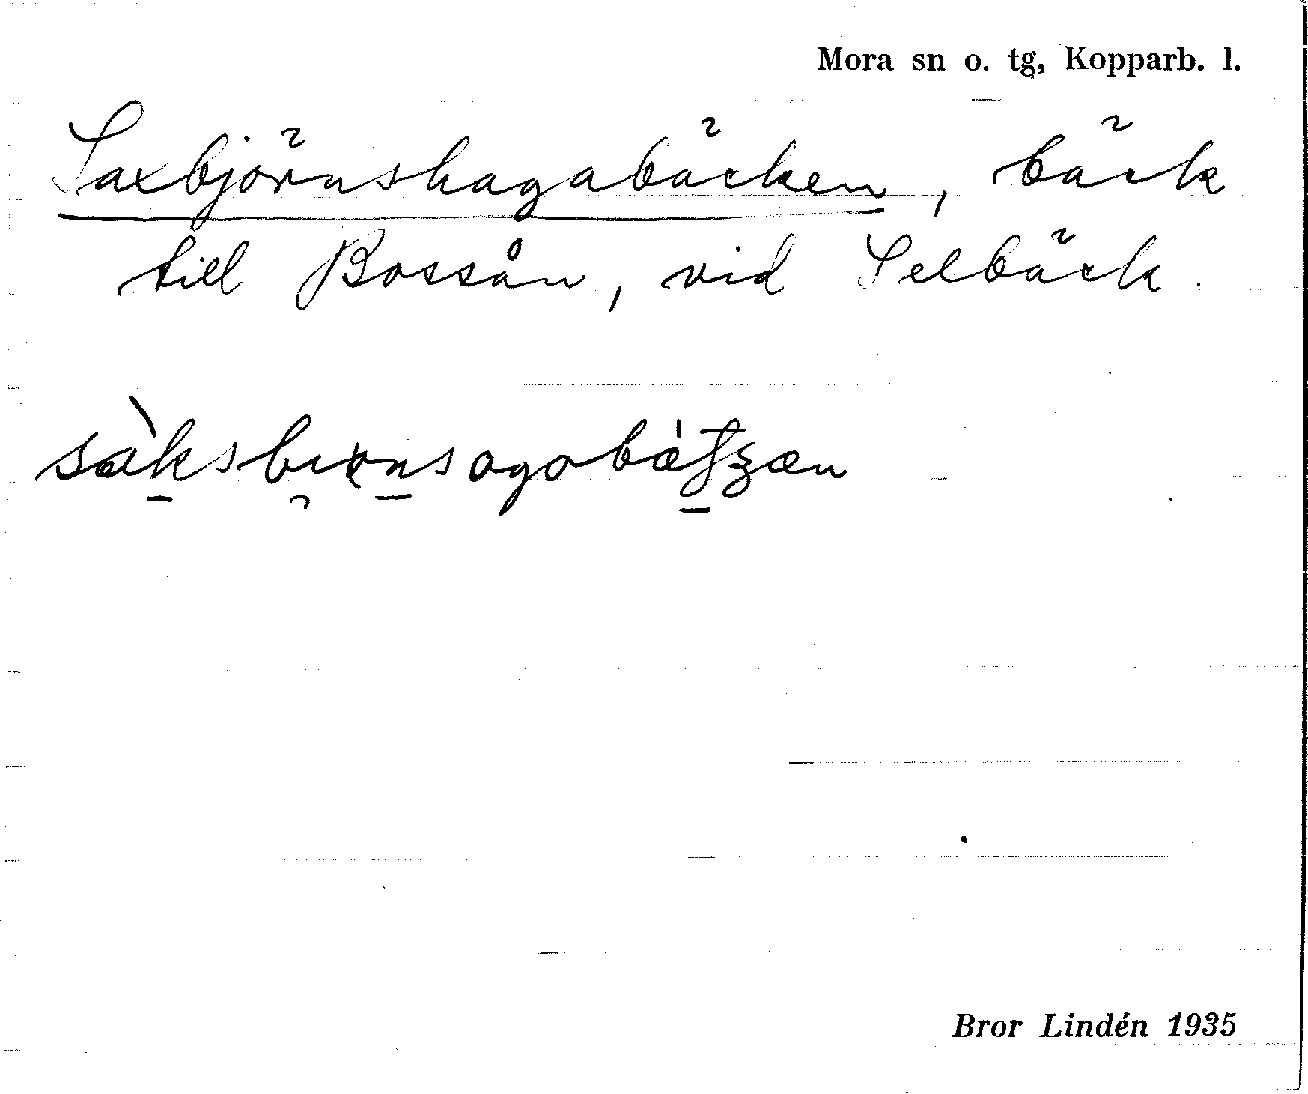 Mora sn o. tg, Kopparb. l.
Saxbjörnshagabäcken, bäck
till Bossån, vid Selbäck.
Bror Lindén 1935